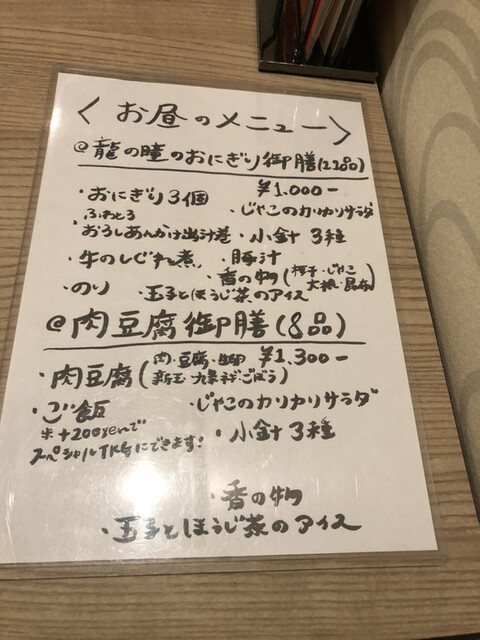 〈お昼のメニュー〉
@龍の瞳のおにぎり御膳(12品)
・おにぎり3個 ¥1.000-
ふわとろ ・じゃこのカリカリサラダ
おろしあんかけ出汁巻 ・小鉢 3種
・牛のしぐれ煮 ・豚汁
・香の物(柚子・じゃこ 大根・昆布)
・のり ・玉子とほうじ茶のアイス
@肉豆腐御膳(8品)
・肉豆腐(肉・豆腐・ ¥1.300-
新玉・九条ネギ・ごぼう)
・ご飯 ・じゃこのカリカリサラダ
※+200yenで ・小鉢 3種
スペシャルTKGにできます!
・香の物
・玉子とほうじ茶のアイス